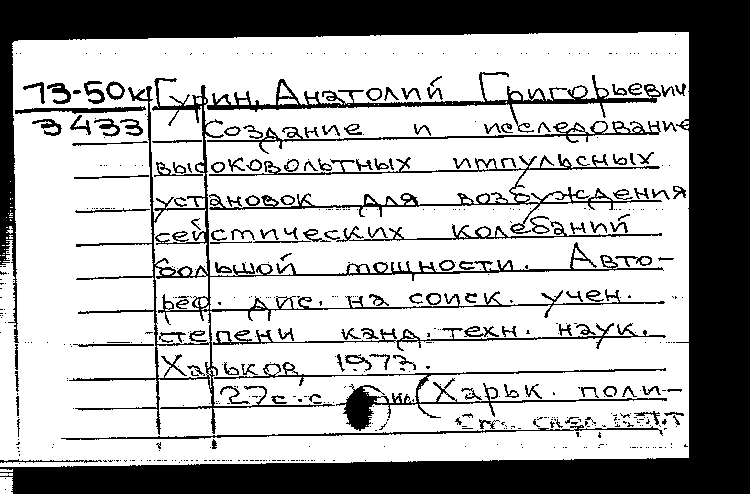 73-50к Гурин, Анатолий Григорьевич
3433 Создание и исследование
высоковольтных импульсных
установок для возбуждения
сейстических колебаний
большой мощности. Авто-
реф. дис. на соиск. учен.
степени канд. техн. наук.
Харьков, 1973.
27с. с ил. (Харьк. поли-
См. след. карт